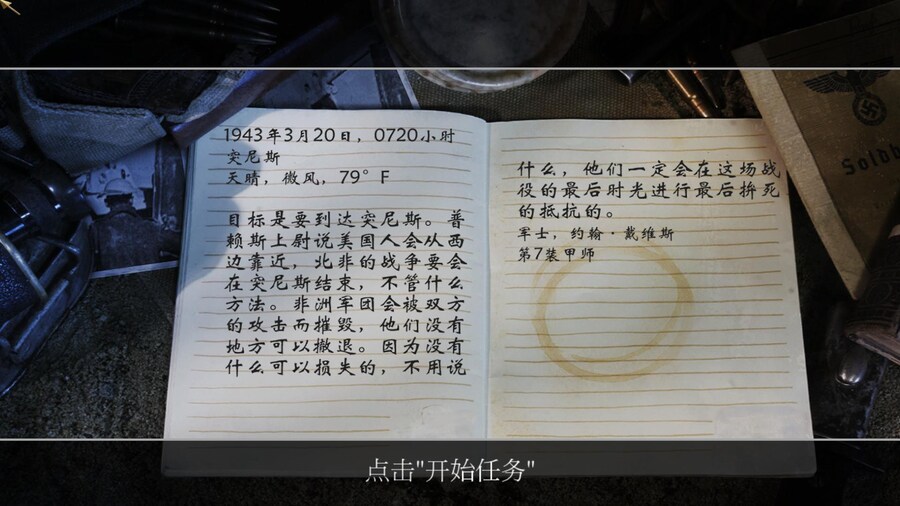 1943年3月20日，0720小时
突尼斯
天晴，微风，79°F
目标是要到达突尼斯。普
赖斯上尉说美国人会从西
边靠近，北非的战争要会
在突尼斯结束，不管什么
方法。非洲军团会被双方
的攻击而摧毁，他们没有
地方可以撤退。因为没有
什么可以损失的，不用说
什么，他们一定会在这场战
役的最后时光进行最后拚死
的抵抗的。
军士，约翰·戴维斯
第7装甲师
Soldb
点击"开始任务"